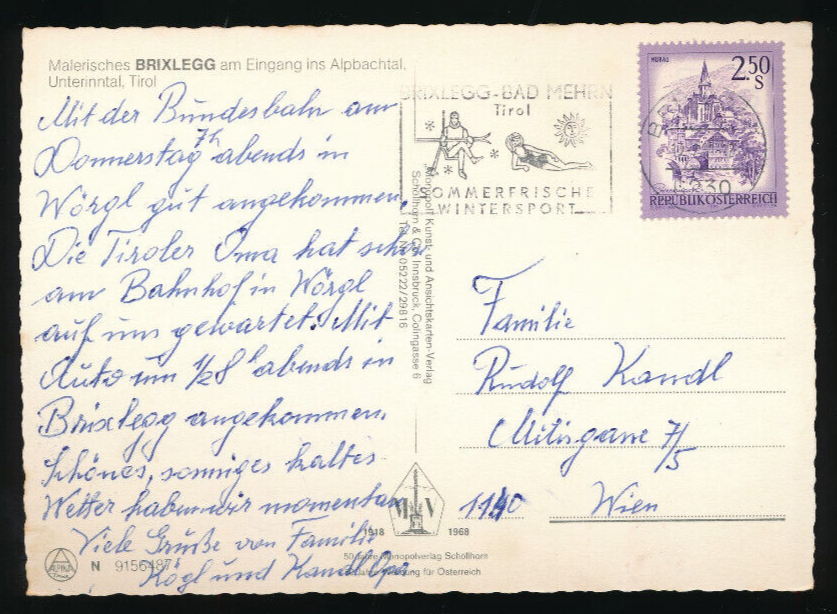 Malerisches BRIXLEGG am Eingang ins Alpbachtal,
Unterinntal, Tirol
Mit der Bundesbahn am
Donnerstag 7h abends in
Wörgl gut angekommen.
Die Tiroler Oma hat schon
am Bahnhof in Wörgl
auf uns gewartet. Mit
Auto um 1/2 8h abends in
Brixlegg angekommen.
Schönes, sonniges kaltes
Wetter haben wir momentan
Viele Grüße von Familie
Kögl und Kandl Opa.
N 9156487
BRIXLEGG-BAD MEHRN
Tirol
SOMMERFRISCHE
WINTERSPORT
MURAU
2.50
S
REPUBLIK ÖSTERREICH
6230
Monopol Kunst- und Ansichtskarten-Verlag
Schöllhorn & Co., Innsbruck, Colingasse 6
Tel. Nr. 05222/29816
Familie
Rudolf Kandl
7/5
1140 Wien
M V
1918 1968
50 Jahre Monopolverlag Schöllhorn
Jahre Werbung für Österreich